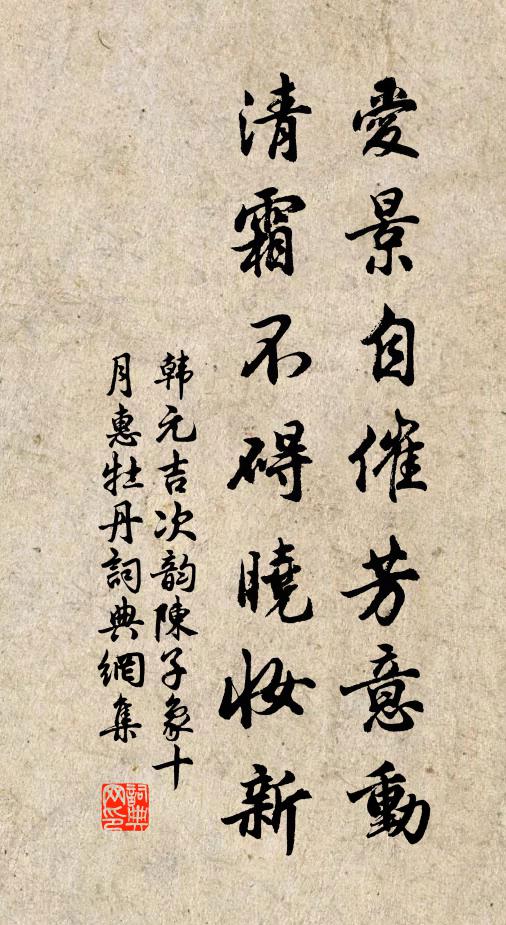 愛景自催芳意動
清霜不碍曉妝新
韩元吉次韵陳子象十
月惠牡丹詞典網集
詞典网印